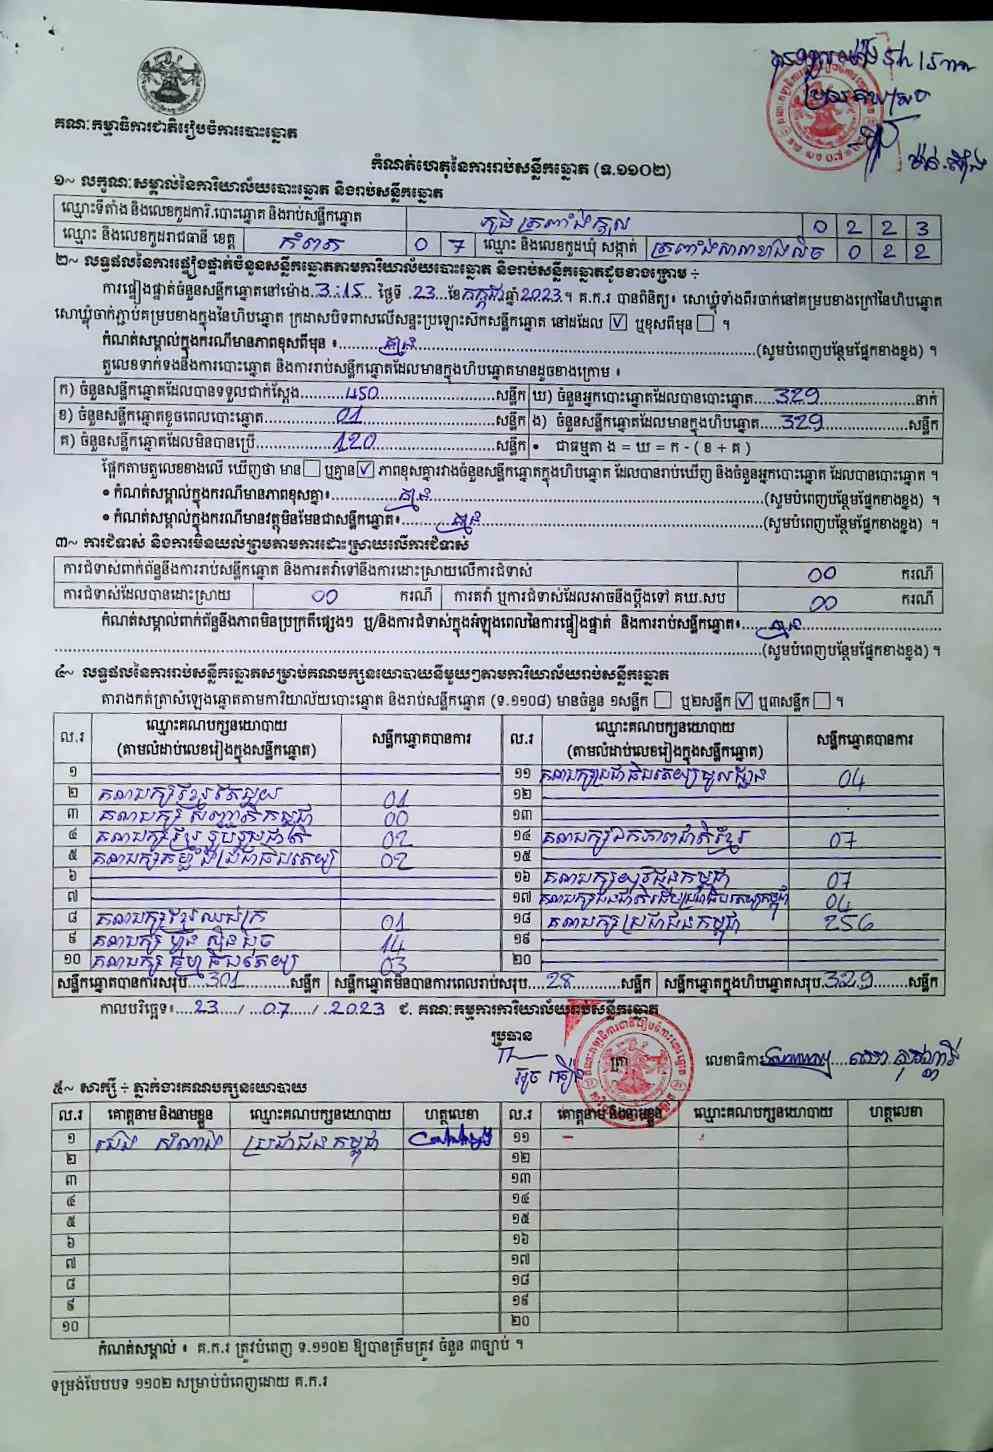 គណៈកម្មាធិការជាតិរៀបចំការបោះឆ្នោត
កំណត់ហេតុនៃការរាប់សន្លឹកឆ្នោត (ទ.១១០២)
១~ លក្ខណៈសម្គាល់នៃការិយាល័យបោះឆ្នោត និងរាប់សន្លឹកឆ្នោត
ឈ្មោះទីតាំង និងលេខកូដការិ.បោះឆ្នោត និងរាប់សន្លឹកឆ្នោត ភូមិ ត្រពាំង 0 2 2 3
ឈ្មោះ និងលេខកូដរាជធានី ខេត្ត កំពត 0 7 ឈ្មោះ និងលេខកូដឃុំ សង្កាត់ ត្រពាំងសាលាខាងលិច 0 2 2
២~ លទ្ធផលនៃការផ្ទៀងផ្ទាត់ចំនួនសន្លឹកឆ្នោតតាមការិយាល័យបោះឆ្នោត និងរាប់សន្លឹកឆ្នោតដូចខាងក្រោម ÷
ការផ្ទៀងផ្ទាត់ចំនួនសន្លឹកឆ្នោតនៅម៉ោង 3:15 ថ្ងៃទី 23 ខែ កក្កដា ឆ្នាំ 2023 ។ គ.ក.រ បានពិនិត្យ៖ សោឃ្លុំទាំងពីរចាក់នៅគម្របខាងក្រៅនៃហិបឆ្នោត
សោឃ្លុំចាក់ភ្ជាប់គម្របខាងក្នុងនៃហិបឆ្នោត ក្រដាសបិទពាសលើសន្ទះប្រឡោះសឹកសន្លឹកឆ្នោត នៅដដែល ☑ ឬខុសពីមុន ☐ ។
កំណត់សម្គាល់ក្នុងករណីមានភាពខុសពីមុន ៖ គ្មាន (សូមបំពេញបន្ថែមផ្នែកខាងខ្នង) ។
តួលេខទាក់ទងនឹងការបោះឆ្នោត និងការរាប់សន្លឹកឆ្នោតដែលមានក្នុងហិបឆ្នោតមានដូចខាងក្រោម ៖
ក) ចំនួនសន្លឹកឆ្នោតដែលបានទទួលជាក់ស្តែង 450 សន្លឹក ឃ) ចំនួនអ្នកបោះឆ្នោតដែលបានបោះឆ្នោត 329 នាក់
ខ) ចំនួនសន្លឹកឆ្នោតខូចពេលបោះឆ្នោត 01 សន្លឹក ង) ចំនួនសន្លឹកឆ្នោតដែលមានក្នុងហិបឆ្នោត 329 សន្លឹក
គ) ចំនួនសន្លឹកឆ្នោតដែលមិនបានប្រើ 120 សន្លឹក • ជាធម្មតា ង = ឃ = ក - ( ខ + គ )
ផ្អែកតាមតួលេខខាងលើ ឃើញថា មាន ☐ ឬគ្មាន ☑ ភាពខុសគ្នារវាងចំនួនសន្លឹកឆ្នោតក្នុងហិបឆ្នោត ដែលបានរាប់ឃើញ និងចំនួនអ្នកបោះឆ្នោត ដែលបានបោះឆ្នោត ។
• កំណត់សម្គាល់ក្នុងករណីមានភាពខុសគ្នា៖ គ្មាន (សូមបំពេញបន្ថែមផ្នែកខាងខ្នង) ។
• កំណត់សម្គាល់ក្នុងករណីមានវត្ថុមិនមែនជាសន្លឹកឆ្នោត៖ គ្មាន (សូមបំពេញបន្ថែមផ្នែកខាងខ្នង) ។
៣~ ការជំទាស់ និងការមិនយល់ព្រមតាមការដោះស្រាយលើការជំទាស់
ការជំទាស់ពាក់ព័ន្ធនឹងការរាប់សន្លឹកឆ្នោត និងការតវ៉ាទៅនឹងការដោះស្រាយលើការជំទាស់ 00 ករណី
ការជំទាស់ដែលបានដោះស្រាយ 00 ករណី ការតវ៉ា ឬការជំទាស់ដែលអាចនឹងប្តឹងទៅ គឃ.សប 00 ករណី
កំណត់សម្គាល់ពាក់ព័ន្ធនឹងភាពមិនប្រក្រតីផ្សេងៗ ឬ/និងការជំទាស់ក្នុងអំឡុងពេលនៃការផ្ទៀងផ្ទាត់ និងការរាប់សន្លឹកឆ្នោត៖ គ្មាន
(សូមបំពេញបន្ថែមផ្នែកខាងខ្នង) ។
៤~ លទ្ធផលនៃការរាប់សន្លឹកឆ្នោតសម្រាប់គណបក្សនយោបាយនីមួយៗតាមការិយាល័យរាប់សន្លឹកឆ្នោត
តារាងកត់ត្រាសំឡេងឆ្នោតតាមការិយាល័យបោះឆ្នោត និងរាប់សន្លឹកឆ្នោត (ទ.១១០៨) មានចំនួន ១សន្លឹក ☐ ឬ២សន្លឹក ☑ ឬ៣សន្លឹក ☐ ។
ល.រ ឈ្មោះគណបក្សនយោបាយ (តាមលំដាប់លេខរៀងក្នុងសន្លឹកឆ្នោត) សន្លឹកឆ្នោតបានការ ល.រ ឈ្មោះគណបក្សនយោបាយ (តាមលំដាប់លេខរៀងក្នុងសន្លឹកឆ្នោត) សន្លឹកឆ្នោតបានការ
១ ១១ គណបក្សប្រជាធិបតេយ្យមូលដ្ឋាន 04
២ គណបក្សខ្មែរតែមួយ 01 ១២
៣ គណបក្ស សញ្ជាតិកម្ពុជា 00 ១៣
៤ គណបក្សខ្មែរ រួបរួមជាតិ 02 ១៤ គណបក្សឯកភាពជាតិខ្មែរ 07
៥ គណបក្សកម្លាំងប្រជាធិបតេយ្យ 02 ១៥
៦ ១៦ គណបក្សយុវជនកម្ពុជា 07
៧ ១៧ គណបក្សជនជាតិដើមប្រជាធិបតេយ្យកម្ពុជា 04
៨ គណបក្សខ្មែរឈប់ក្រ 01 ១៨ គណបក្សប្រជាជនកម្ពុជា 256
៩ គណបក្ស ហ្វ៊ុនស៊ិនប៉ិច 14 ១៩
១០ គណបក្ស ធម្មាធិបតេយ្យ 03 ២០
សន្លឹកឆ្នោតបានការសរុប 301 សន្លឹក សន្លឹកឆ្នោតមិនបានការពេលរាប់សរុប 28 សន្លឹក សន្លឹកឆ្នោតក្នុងហិបឆ្នោតសរុប 329 សន្លឹក
កាលបរិច្ឆេទ៖ 23 / 07 / 2023 ជ. គណៈកម្មការការិយាល័យរាប់សន្លឹកឆ្នោត
ប្រធាន ត្រា លេខាធិការ
៥~ សាក្សី ÷ ភ្នាក់ងារគណបក្សនយោបាយ
ល.រ គោត្តនាម និងនាមខ្លួន ឈ្មោះគណបក្សនយោបាយ ហត្ថលេខា ល.រ គោត្តនាម និងនាមខ្លួន ឈ្មោះគណបក្សនយោបាយ ហត្ថលេខា
១ សំណាង ប្រជាជនកម្ពុជា ១១
២ ១២
៣ ១៣
៤ ១៤
៥ ១៥
៦ ១៦
៧ ១៧
៨ ១៨
៩ ១៩
១០ ២០
កំណត់សម្គាល់ ៖ គ.ក.រ ត្រូវបំពេញ ទ.១១០២ ឱ្យបានត្រឹមត្រូវ ចំនួន ៣ច្បាប់ ។
ទម្រង់បែបបទ ១១០២ សម្រាប់បំពេញដោយ គ.ក.រ